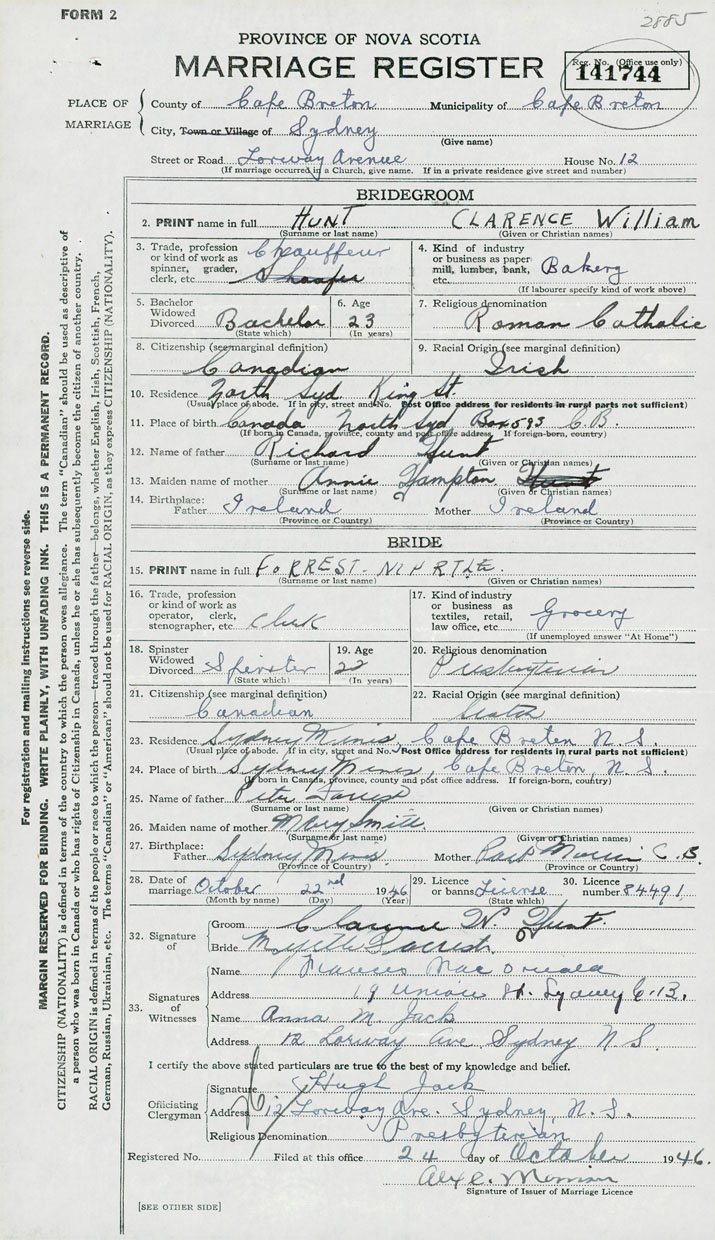 FORM 2
2885
PROVINCE OF NOVA SCOTIA
MARRIAGE REGISTER
Reg. No. (Office use only)
141744
PLACE OF MARRIAGE
County of Cape Breton Municipality of Cape Breton
City, Town or Village of Sydney
(Give name)
Street or Road Lorway Avenue House No. 12
(If marriage occurred in a Church, give name. If in a private residence give street and number)
BRIDEGROOM
2. PRINT name in full HUNT CLARENCE William
(Surname or last name) (Given or Christian names)
3. Trade, profession or kind of work as spinner, grader, clerk, etc. Chauffeur
4. Kind of industry or business as paper mill, lumber, bank, etc. Bakery
(If labourer specify kind of work above)
5. Bachelor Widowed Divorced Bachelor
(State which)
6. Age 23
(In years)
7. Religious denomination
Roman Catholic
8. Citizenship (see marginal definition)
Canadian
9. Racial Origin (see marginal definition)
Irish
10. Residence North Syd King St.
(Usual place of abode. If in city, street and No. Post Office address for residents in rural parts not sufficient)
11. Place of birth Canada North Syd Box 593 C.B.
(If born in Canada, province, county and post office address. If foreign-born, country)
12. Name of father Richard Hunt
(Surname or last name) (Given or Christian names)
13. Maiden name of mother Annie
(Surname or last name) (Given or Christian names)
14. Birthplace:
Father Ireland Mother Ireland
(Province or Country) (Province or Country)
BRIDE
15. PRINT name in full FORREST
(Surname or last name) (Given or Christian names)
16. Trade, profession or kind of work as operator, clerk, stenographer, etc. Clerk
17. Kind of industry or business as textiles, retail, law office, etc. Grocery
(If unemployed answer "At Home")
18. Spinster Widowed Divorced Spinster
(State which)
19. Age 22
(In years)
20. Religious denomination
Presbyterian
21. Citizenship (see marginal definition)
Canadian
22. Racial Origin (see marginal definition)
23. Residence Sydney Mines, Cape Breton N.S.
(Usual place of abode. If in city, street and No. Post Office address for residents in rural parts not sufficient)
24. Place of birth Sydney Mines, Cape Breton, N.S.
(If born in Canada, province, county and post office address. If foreign-born, country)
25. Name of father Peter Forrest
(Surname or last name) (Given or Christian names)
26. Maiden name of mother Mary Smith
(Surname or last name) (Given or Christian names)
27. Birthplace:
Father Sydney Mines Mother Port Morien C.B.
(Province or Country) (Province or Country)
28. Date of marriage October 22nd 1946
(Month by name) (Day) (Year)
29. Licence or banns License
(State which)
30. Licence number 84491
32. Signature of
Groom Clarence W. Hunt
Bride Myrtle Forrest
33. Signatures of Witnesses
Name Frances
Address 19 Union St. Sydney C.B.
Name Anna M. Jack
Address 12 Lorway Ave Sydney N S
I certify the above stated particulars are true to the best of my knowledge and belief.
Officiating Clergyman
Signature Hugh Jack
Address 12 Lorway Ave. Sydney, N.S.
Religious Denomination Presbyterian
Registered No. Filed at this office 24 day of October 1946.
Signature of Issuer of Marriage Licence
[SEE OTHER SIDE]
For registration and mailing instructions see reverse side.
MARGIN RESERVED FOR BINDING. WRITE PLAINLY, WITH UNFADING INK. THIS IS A PERMANENT RECORD.
CITIZENSHIP (NATIONALITY) is defined in terms of the country to which the person owes allegiance. The term "Canadian" should be used as descriptive of
a person who was born in Canada or who has rights of Citizenship in Canada, unless he or she has subsequently become the citizen of another country.
RACIAL ORIGIN is defined in terms of the people or race to which the person—traced through the father—belongs, whether English, Irish, Scottish, French,
German, Russian, Ukrainian, etc. The terms "Canadian" or "American" should not be used for RACIAL ORIGIN, as they express CITIZENSHIP (NATIONALITY).